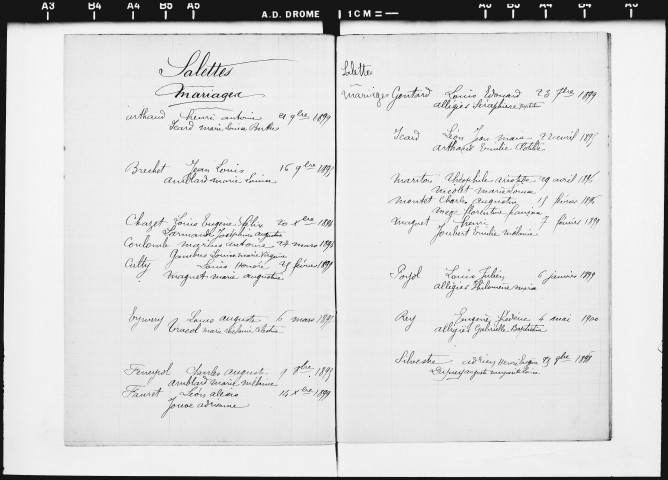 A3 B4 A4 B5 A5 A.D. DROME 1 CM = A5 B5 A4 B4 A3
Salettes
Mariages
arthaud henri antoine 21 9bre 1899
Icard marie Louise
Brechet Jean Louis 16 9bre 189
amblard marie Louise
Chazet Louis Eugène Felix 20 Xbre 1896
Larmande Joséphine augustine
Coulomb marius antoine 24 mars 1896
Gambus Louise marie
Culty Louis Honoré 25 février 1899
Maguet marie augustine
Eymery Louis auguste 6 mars 189
Vracol marie
Feneyrol Charles august 9 8bre 189
amblard marie mélanie
Fauret Léon alexis 14 Xbre 1899
Jouve adrienne
Salettes
Mariages Gontard Louis Edouard 23 7bre 1899
alligiés Séraphine
Icard Léon Jean marie 22 avril 189
arthaud Emilie
Mariton théophile aristide 29 avril 1896
nicolet marie louise
Montet Charles augustin 15 février 1896
mege florentine françoise
Maguet henri 7 février 1899
Joubert Emilie mélanie
Poyol Louis Julien 6 janvier 1899
alligiés Philomène maria
Rey Eugène Frédéric 4 mai 1900
alligiés Gabrielle
Silvestre adrien Henri 9bre